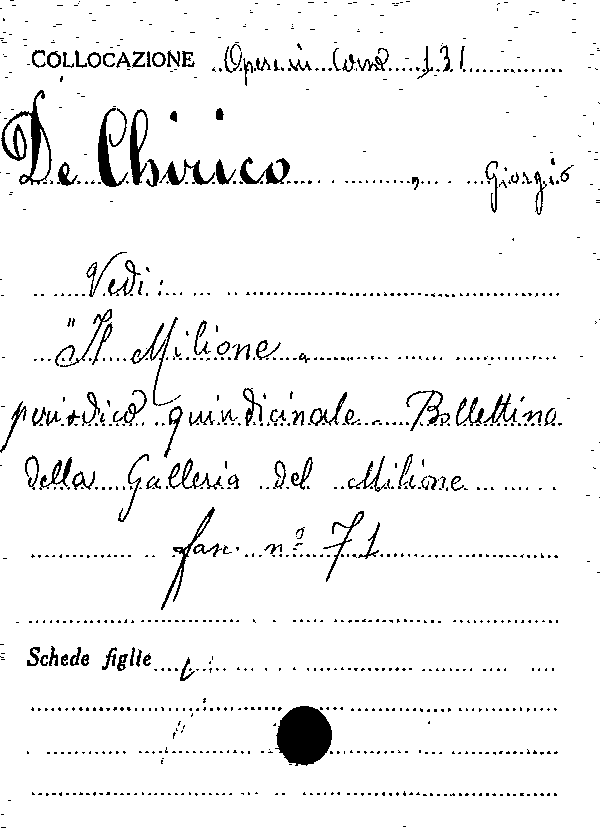 COLLOCAZIONE Opere in Corso 131
De Chirico, Giorgio
Vedi:
"Il Milione"
periodico quindicinale - Bollettino
della Galleria del Milione
fasc. nº 71
Schede figlie